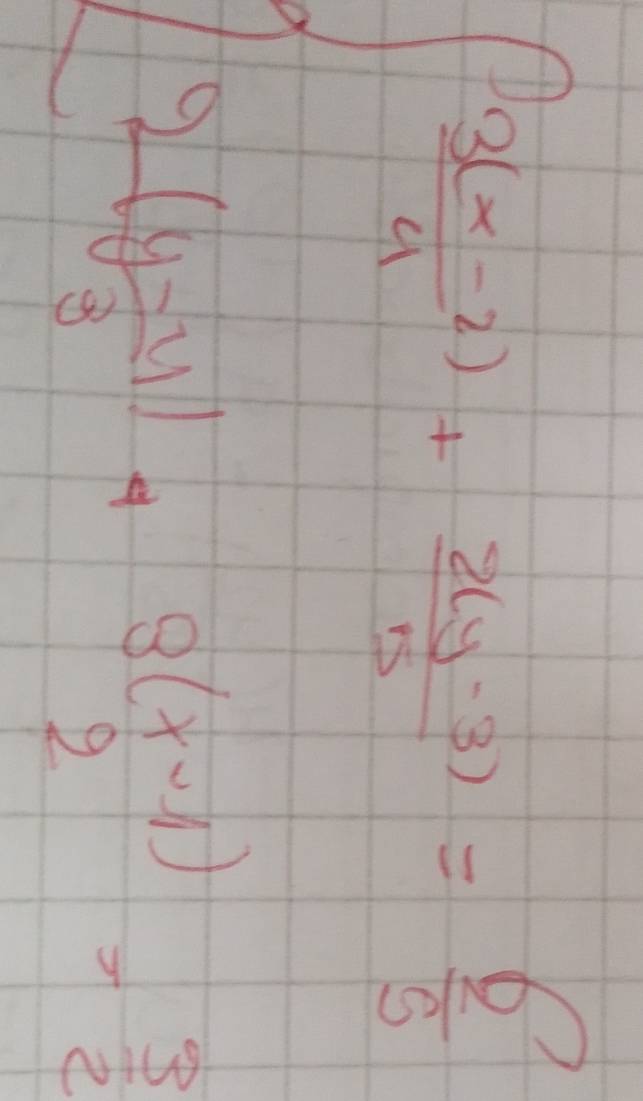 3(x-2)/4 + 2(y-3)/5 = 2/5
2(y-4)/3 + 8(x-1)/2 = 3/2